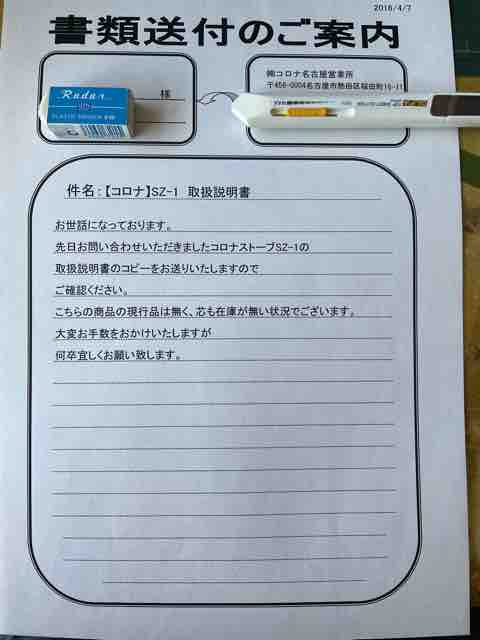 2016/4/7
書類送付のご案内
様
㈱コロナ名古屋営業所
〒456-0004名古屋市熱田区桜田町16-11
Radar
PLASTIC ERASER
件名：【コロナ】SZ-1 取扱説明書
お世話になっております。
先日お問い合わせいただきましたコロナストーブSZ-1の
取扱説明書のコピーをお送りいたしますので
ご確認ください。
こちらの商品の現行品は無く、芯も在庫が無い状況でございます。
大変お手数をおかけいたしますが
何卒宜しくお願い致します。